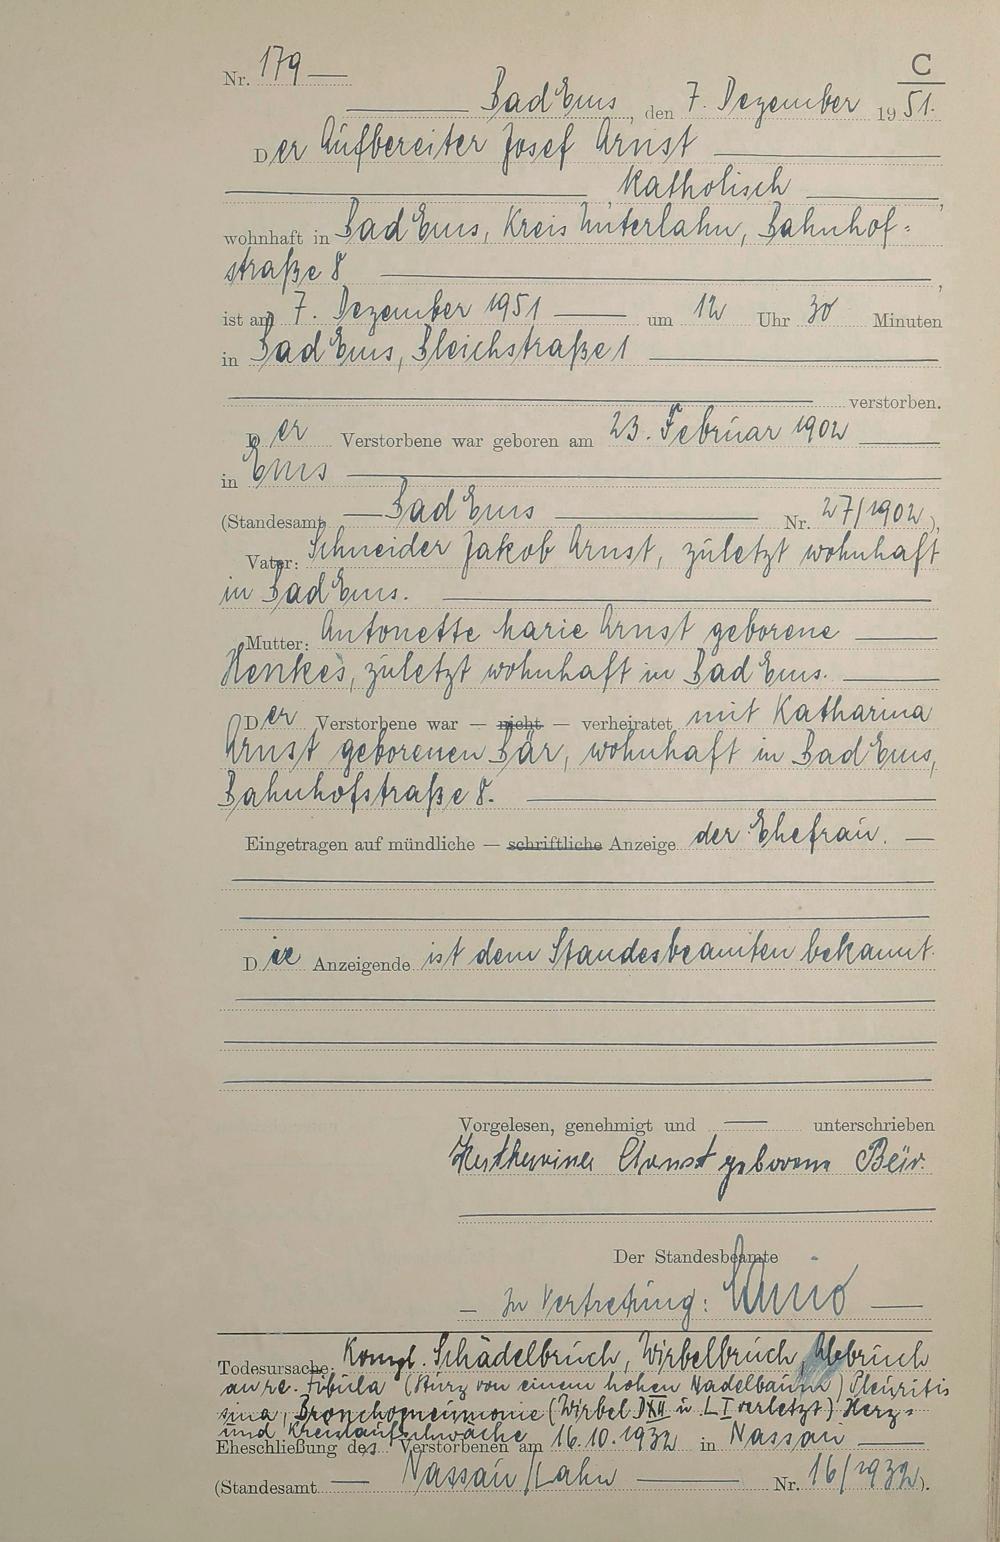 C
Nr. 179
Bad Ems, den 7. Dezember 1951.
Der Aufbereiter Josef Arnst
, katholisch,
wohnhaft in Bad Ems, Kreis Unterlahn, Bahnhof-
straße 8,
ist am 7. Dezember 1951 um 12 Uhr 30 Minuten
in Bad Ems, Bleichstraße 1
verstorben.
Der Verstorbene war geboren am 23. Februar 1902
in Ems
(Standesamt Bad Ems Nr. 27/1902),
Vater: Schneider Jakob Arnst, zuletzt wohnhaft
in Bad Ems.
Mutter: Antonette Marie Arnst geborene
Henkes, zuletzt wohnhaft in Bad Ems.
Der Verstorbene war — nicht — verheiratet mit Katharina
Arnst geborenen Bär, wohnhaft in Bad Ems,
Bahnhofstraße 8.
Eingetragen auf mündliche — schriftliche Anzeige der Ehefrau.
Die Anzeigende ist dem Standesbeamten bekannt.
Vorgelesen, genehmigt und unterschrieben
Katharina Arnst geborene Bär.
Der Standesbeamte
In Vertretung:
Todesursache: Kompl. Schädelbruch, Wirbelbruch,
an re. Fibula (Sturz von einem hohen Nadelbaum) Pleuritis
Bronchopneumonie (Wirbel DXII u LI verletzt) Herz-
und Kreislaufschwäche
Eheschließung des Verstorbenen am 16.10.1932 in Nassau
(Standesamt Nassau/Lahn Nr. 16/1932).